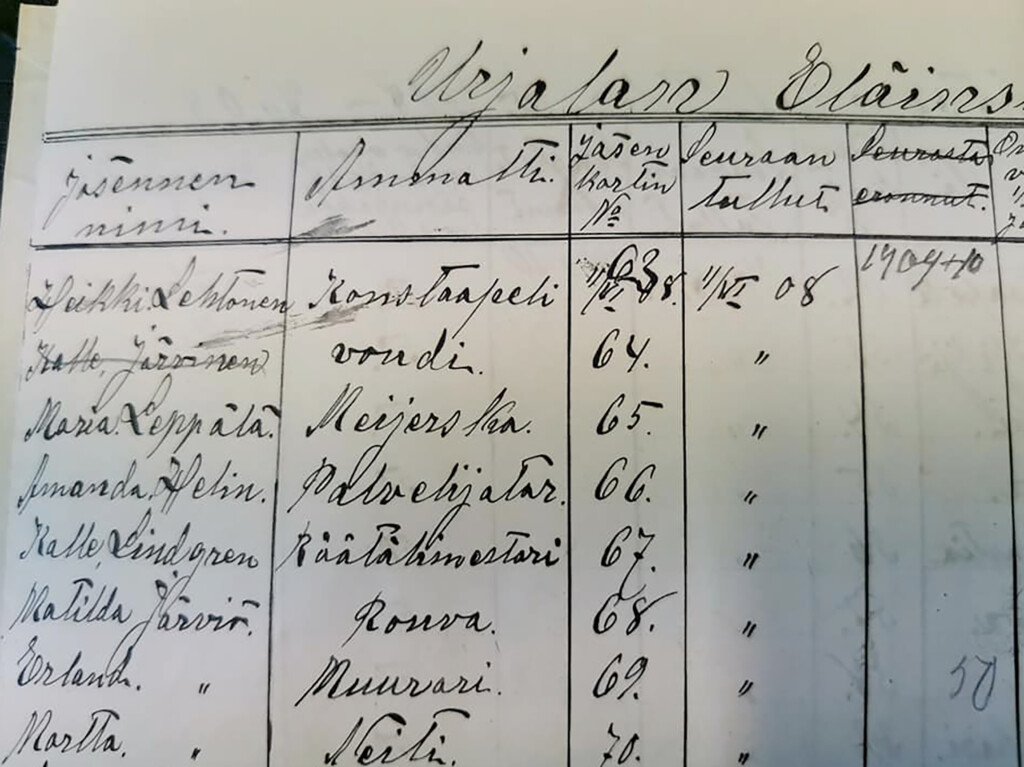 Urjalan Eläins
Jäsennen nimi. Ammatti. Jäsen kortin No Seuraan tullut. Seurasta eronnut.
Heikki Lehtonen Konstaapeli 63 11/VI 08. 11/VI 08 1909+10
Kalle Järvinen vouti. 64. "
Maria Leppälä. Meijerska. 65. "
Amanda Helin. Palvelijatar. 66. "
Kalle Lindgren Räätälimestari 67. "
Matilda Järviö. Rouva. 68. "
Erland. " Muurari. 69. " 50
Martta. " Neiti. 70. "